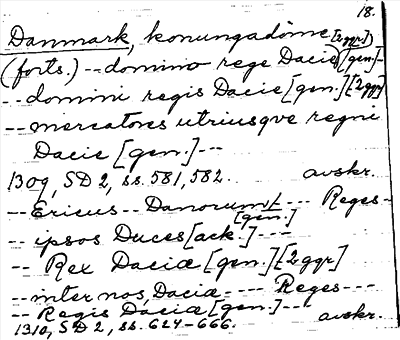 18.
Danmark, konungadöme [2ggr]
(forts.) -- domino rege Dacie) [gen.] --
-- domini regis Dacie [gen.] [2ggr]
-- mercatores utriusqve regni
Dacie [gen.] ---
1309, SD 2, ss. 581, 582. avskr.
-- Ericus -- Danorum [gen.] --- Reges --
-- ipsos Duces [ack.] ---
-- Rex Daciæ [gen.] [2ggr]
-- inter nos, Daciæ ---- Reges ---
-- Regis Daciæ [gen.] ---
1310, SD 2, ss. 624-666. avskr.